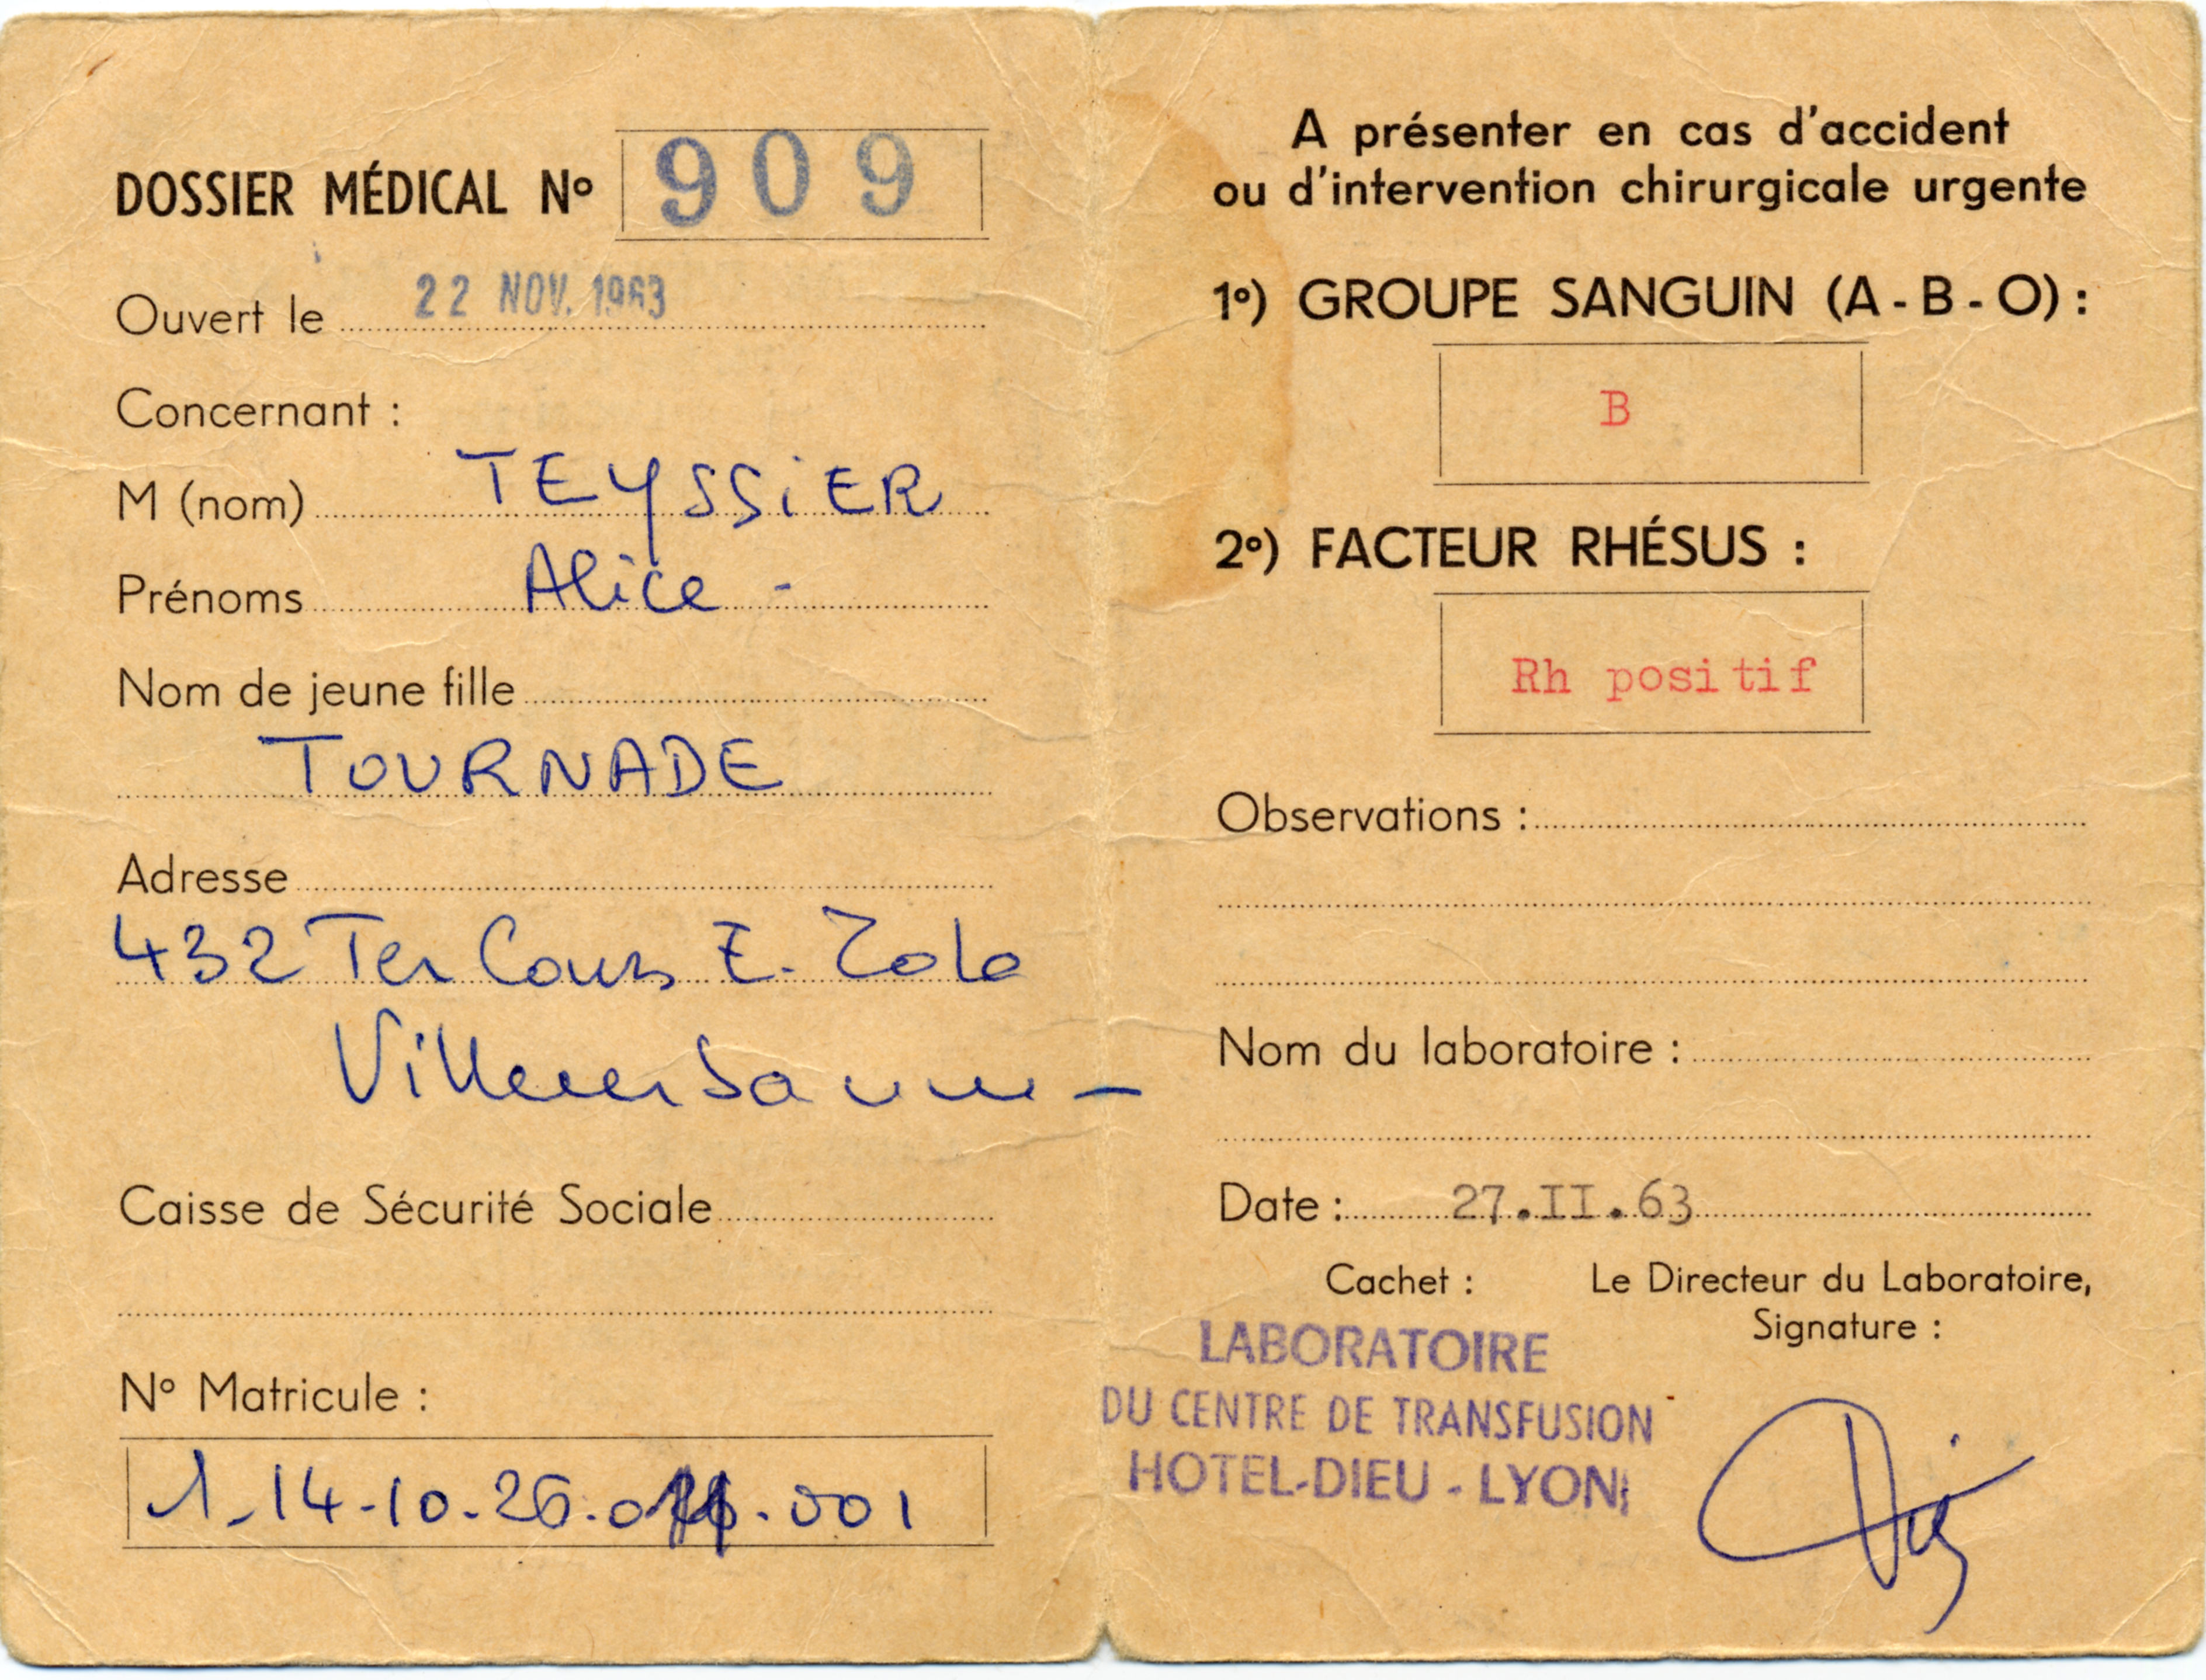 DOSSIER MÉDICAL Nº 909
Ouvert le 22 NOV. 1963
Concernant :
M (nom) TEYSSIER
Prénoms Alice -
Nom de jeune fille
TOURNADE
Adresse
432 Ter Cours E. Zola
Villeurbanne -
Caisse de Sécurité Sociale
Nº Matricule :
1-14-10-26. .001
A présenter en cas d'accident
ou d'intervention chirurgicale urgente
1º) GROUPE SANGUIN (A - B - O) :
B
2º) FACTEUR RHÉSUS :
Rh positif
Observations :
Nom du laboratoire :
Date : 27.II.63
Cachet :
Le Directeur du Laboratoire,
Signature :
LABORATOIRE
DU CENTRE DE TRANSFUSION
HOTEL-DIEU - LYON